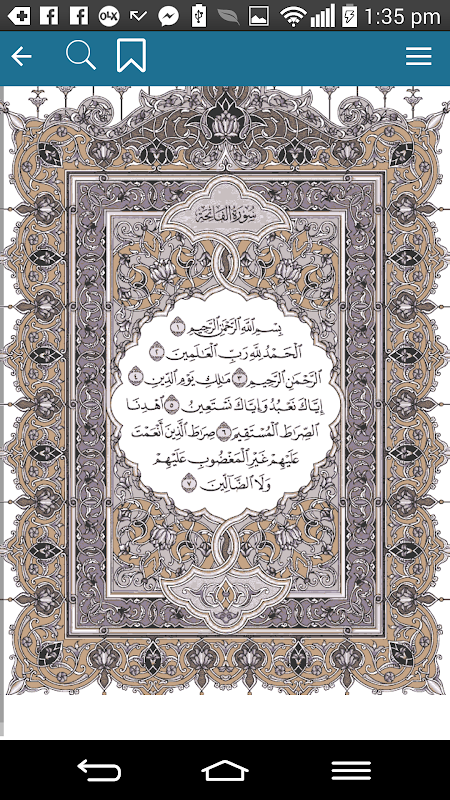 1:35 pm
سُورَةُ الفَاتِحَةِ
بِسْمِ ٱللَّهِ ٱلرَّحْمَٰنِ ٱلرَّحِيمِ ١
ٱلْحَمْدُ لِلَّهِ رَبِّ ٱلْعَٰلَمِينَ ٢
ٱلرَّحْمَٰنِ ٱلرَّحِيمِ ٣ مَٰلِكِ يَوْمِ ٱلدِّينِ ٤
إِيَّاكَ نَعْبُدُ وَإِيَّاكَ نَسْتَعِينُ ٥ ٱهْدِنَا
ٱلصِّرَٰطَ ٱلْمُسْتَقِيمَ ٦ صِرَٰطَ ٱلَّذِينَ أَنْعَمْتَ
عَلَيْهِمْ غَيْرِ ٱلْمَغْضُوبِ عَلَيْهِمْ
وَلَا ٱلضَّآلِّينَ ٧